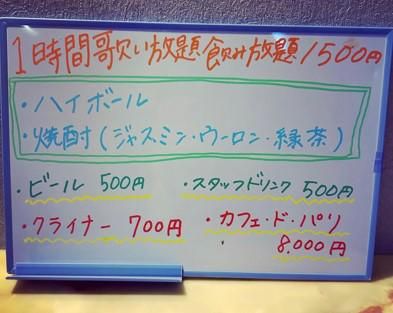 1時間歌い放題飲み放題1500円
・ハイボール
・焼酎(ジャスミン・ウーロン・緑茶)
・ビール 500円 ・スタッフドリンク 500円
・クライナー 700円 ・カフェ・ド・パリ
8,000円